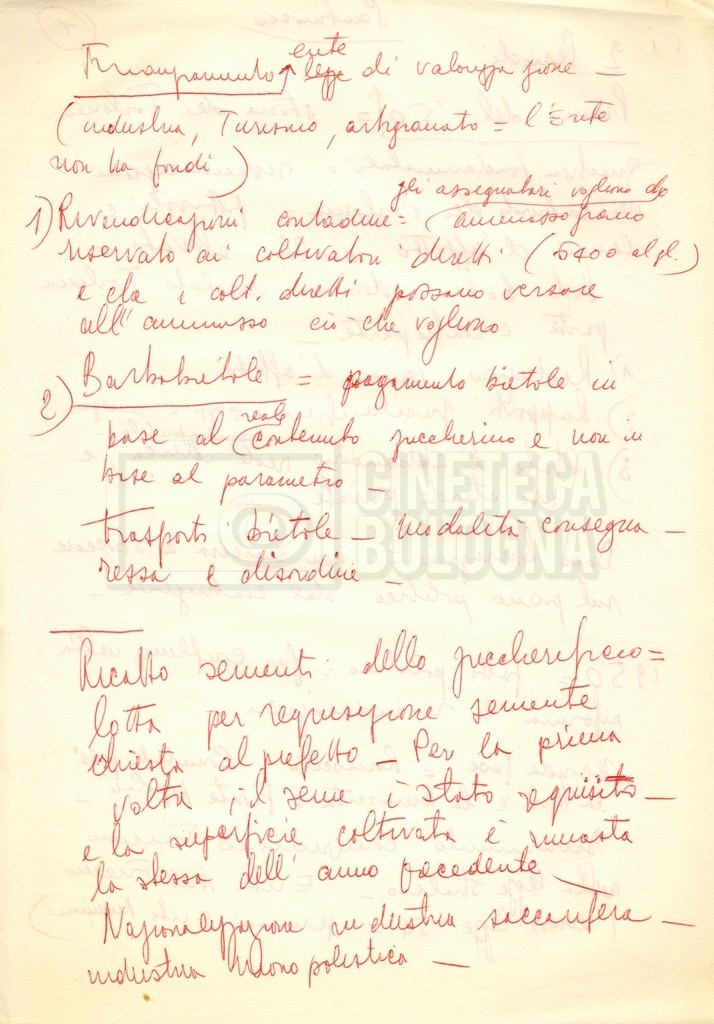 ente
Finanziamento legge di valorizzazione —
(industria, Turismo, artigianato = l'Ente
non ha fondi)
gli assegnatari vogliono che
1) Rivendicazioni contadine = ammasso grano
riservato ai coltivatori diretti (5400 al ql.)
e che i colt. diretti possano versare
all'ammasso ciò che vogliono
2) Barbabietole = pagamento bietole in
reale
base al contenuto zuccherino e non in
base al parametro —
trasporti bietole — modalità consegna —
ressa e disordine —
Ricatto sementi dello zuccherificio =
lotta per requisizione semente
chiesta al prefetto — Per la prima
volta, il seme è stato requisito —
e la superficie coltivata è rimasta
la stessa dell'anno precedente —
Nazionalizzazione industria saccarifera —
industria monopolistica —
CINETECA
BOLOGNA